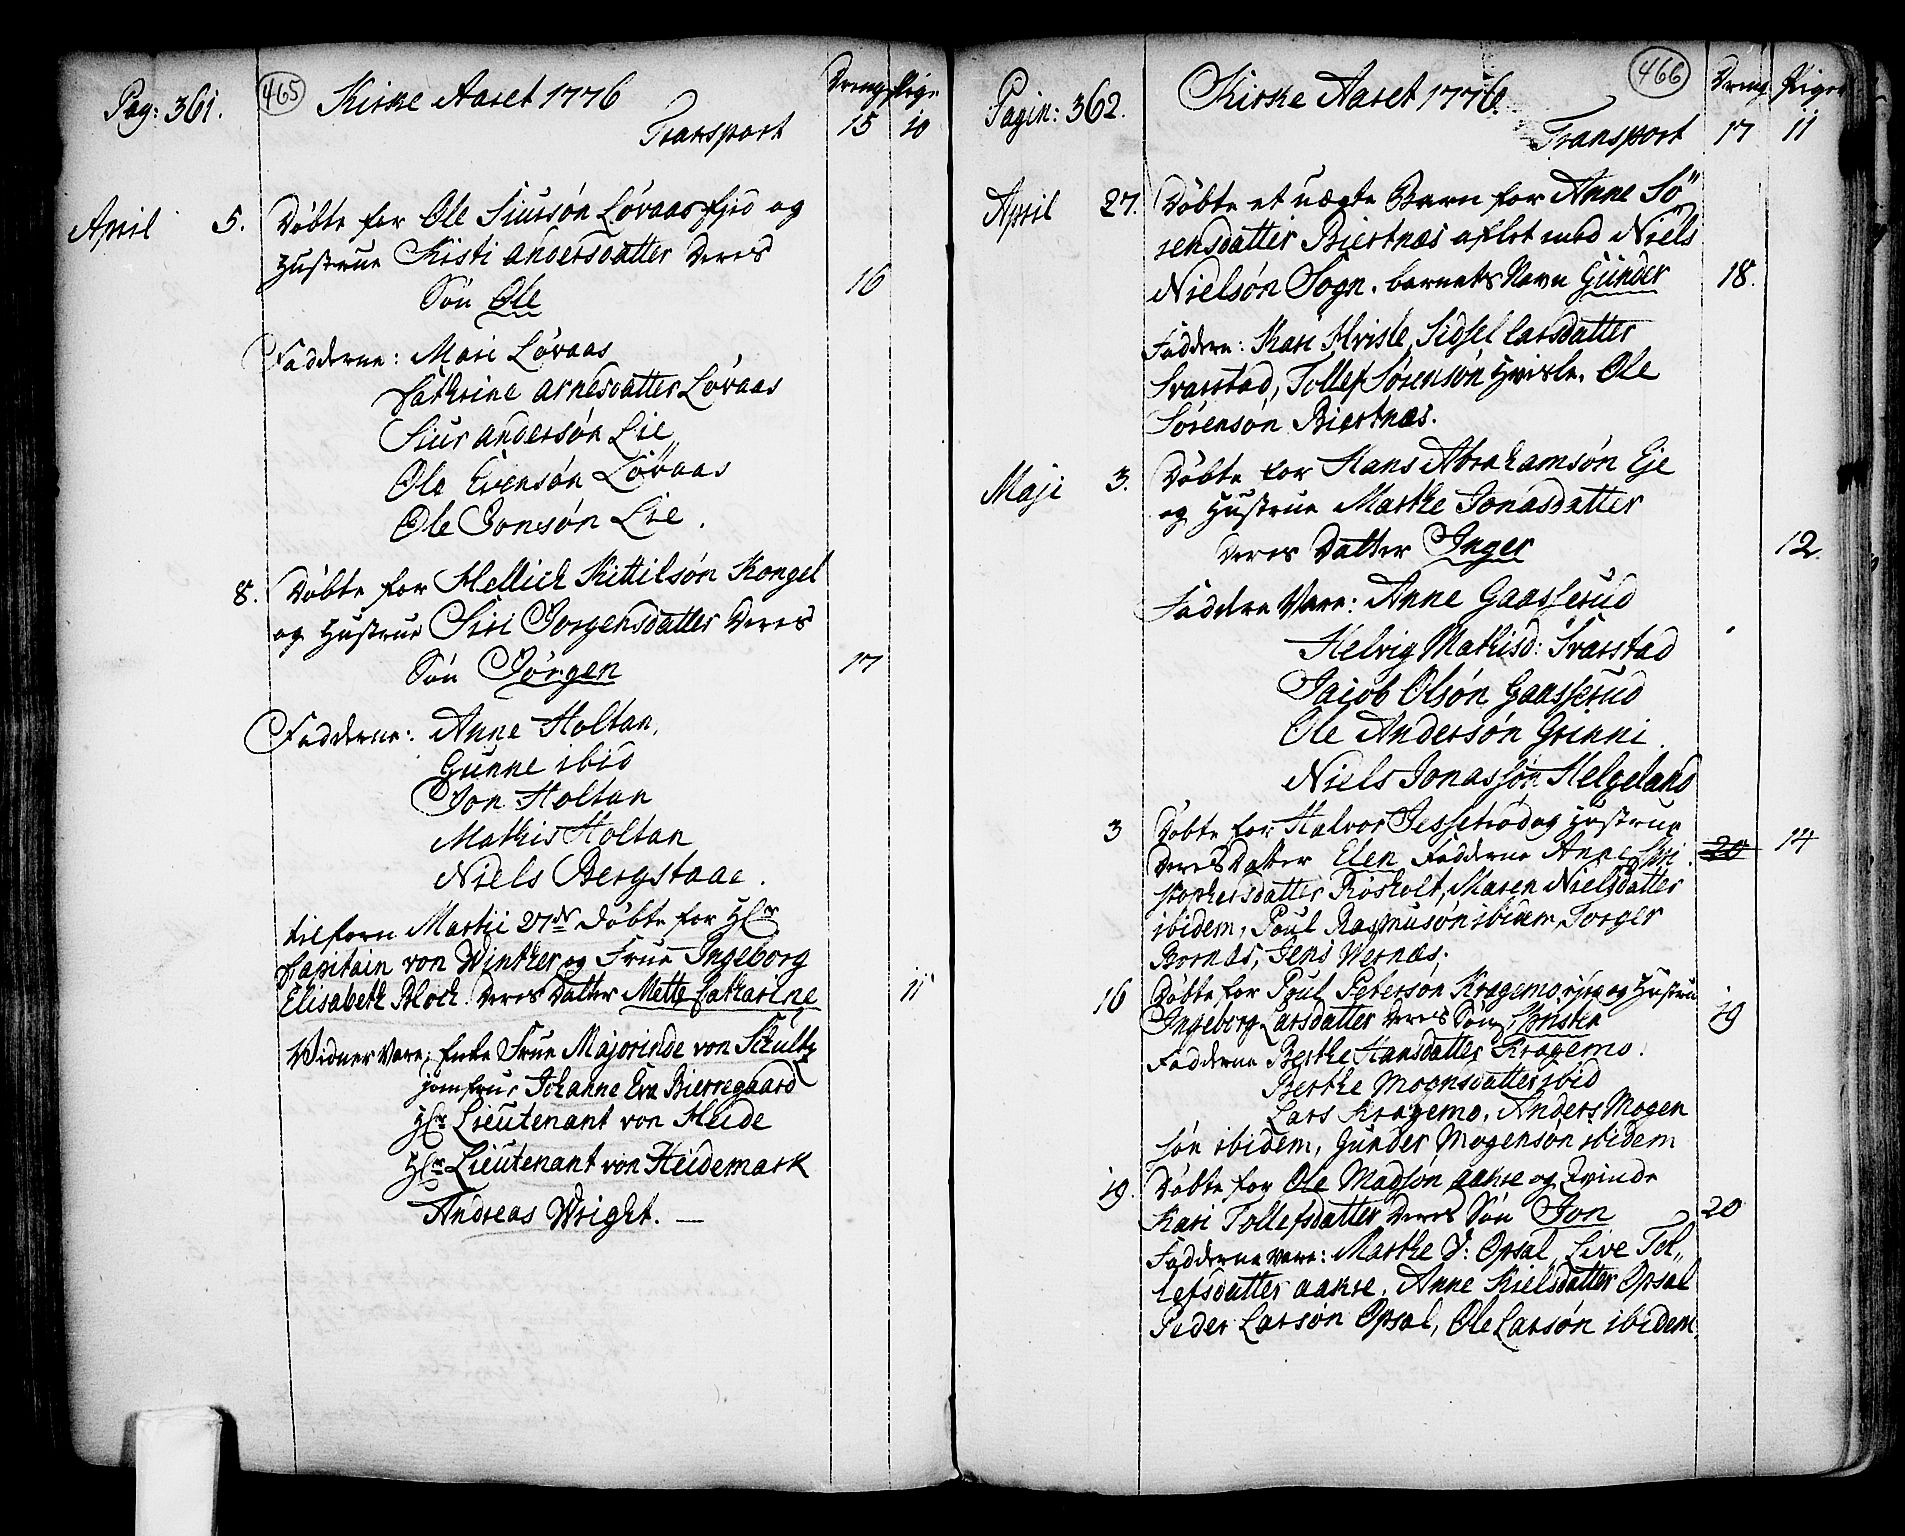 Pag: 361. 465 Kirke Aaret 1776 Drenge Pige
Transport 15 10
April 5. Døbte for Ole Siursøn Løvaas ejed og
Hustrue Kisti Andersdatter Deres
Søn Ole 16
Fadderne: Mari Løvaas
Cathrine Arnesdatter Løvaas
Siur Andersøn Lie
Ole Evensøn Løvaas
Ole Jonsøn Lie.
8. Døbte for Hellich Kittilsøn Kongel
og Hustrue Siri Jorgensdatter Deres
Søn Jørgen 17
Fadderne: Anne Holtan,
Gunne ibid
Jon Holtan
Mathis Holtan
Niels Bergstaae.
tilforn Martii 27de Døbte for Hr
Capitain von Winther og Frue Ingeborg
Elisabeth Bloch Deres Datter Mette Catharine 11
Widner Vare, Enke Frue Majorinde von Schultz
jomfrue Johanne Eva Bierregaard
Hr Lieutenant von Heide
Hr Lieutenant von Heidemark
Andreas Wright. —
Pagin: 362. Kirke Aaret 1776. 466 Dreng Piger
Transport 17 11
April 27. Døbte et uægte Barn for Anne Sö"
rensdatter Biertnæs aflet med Niels
Nielsøn Sogn. barnets Navn Gunder 18.
Faddere: Kari Hvisle, Sidsel Larsdatter
Svarstad, Tollef Sørensøn Hvisle. Ole
Sørensøn Biertnæs.
Maji 3. Døbte for Hans Abrahamsøn Eje
og Hustrue Marthe Jonasdatter
Deres Datter Inger 12.
Faddere Vare: Anne Gaasserud
Helvig Mathisd: Svarstad
Jacob Olsøn Gaasserud
Ole Andersøn Grinni
Niels Jonassøn Helgeland
3 Døbte for Halvor Jessetrød og Hustrue
Deres Datter Elen Fadderne Anne Chri 20 14
stophersdatter Røsholt, Maren Nielsdatter
ibidem, Poul Rasmusøn ibidem, Torger
Bornæs, Jens Wernæs.
16 Døbte for Poul Pedersøn Kragemo ejer og Hustru
Ingeborg Larsdatter Deres Søn Christen 19
Fadderne Berthe Hansdatter Kragemo.
Berthe Mognsdatter ibid
Lars Kragemo, Anders Mogen
søn ibidem, Gunder Mogensøn ibidem
19. Døbte for Ole Madsøn Aakre og Qvinde
Kari Tollefsdatter Deres Søn Jon 20
Fadderne Vare: Marthe D: Opsal, Live Tol„
lefsdatter Aakre. Anne Nielsdatter Opsal
Peder Larsøn Opsal, Ole Larsøn ibidem,